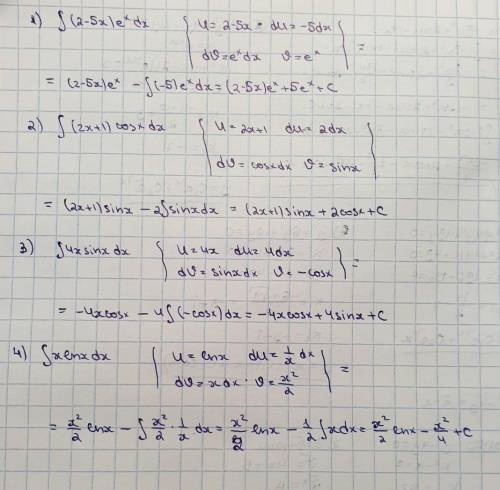 1) ∫(2-5x)eˣdx { u=2-5x du=-5dx
dϑ=eˣdx ϑ=eˣ } =
= (2-5x)eˣ - ∫(-5)eˣdx = (2-5x)eˣ+5eˣ+C
2) ∫(2x+1)cosxdx { u=2x+1 du=2dx
dϑ=cosxdx ϑ=sinx }
= (2x+1)sinx - 2∫sinxdx = (2x+1)sinx + 2cosx+C
3) ∫4xsinxdx { u=4x du=4dx
dϑ=sinxdx ϑ=-cosx } =
= -4xcosx - 4∫(-cosx)dx = -4xcosx+4sinx+C
4) ∫xlnxdx { u=lnx du=1/x dx
dϑ=xdx ϑ=x²/2 } =
= x²/2 lnx - ∫x²/2 · 1/x dx = x²/2 lnx - 1/2∫xdx = x²/2 lnx - x²/4 + C